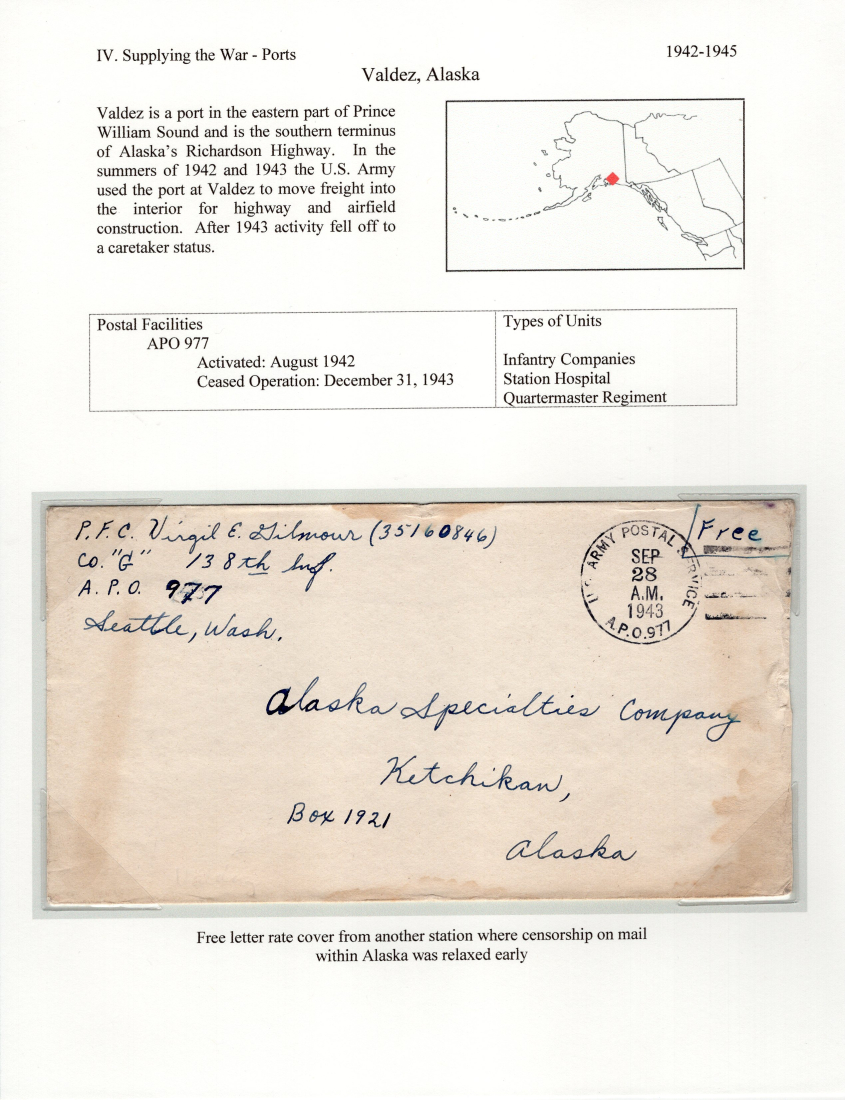 IV. Supplying the War - Ports
1942-1945
Valdez, Alaska
Valdez is a port in the eastern part of Prince
William Sound and is the southern terminus
of Alaska's Richardson Highway. In the
summers of 1942 and 1943 the U.S. Army
used the port at Valdez to move freight into
the interior for highway and airfield
construction. After 1943 activity fell off to
a caretaker status.
Postal Facilities
APO 977
Activated: August 1942
Ceased Operation: December 31, 1943
Types of Units
Infantry Companies
Station Hospital
Quartermaster Regiment
P.F.C. Virgil E. Gilmour (35160846)
Co. "G" 138th Inf.
A.P.O. 977
Seattle, Wash.
U.S. ARMY POSTAL SERVICE
SEP
28
A.M.
1943
A.P.O. 977
Free
Alaska Specialties Company
Ketchikan,
Box 1921
Alaska
Free letter rate cover from another station where censorship on mail
within Alaska was relaxed early